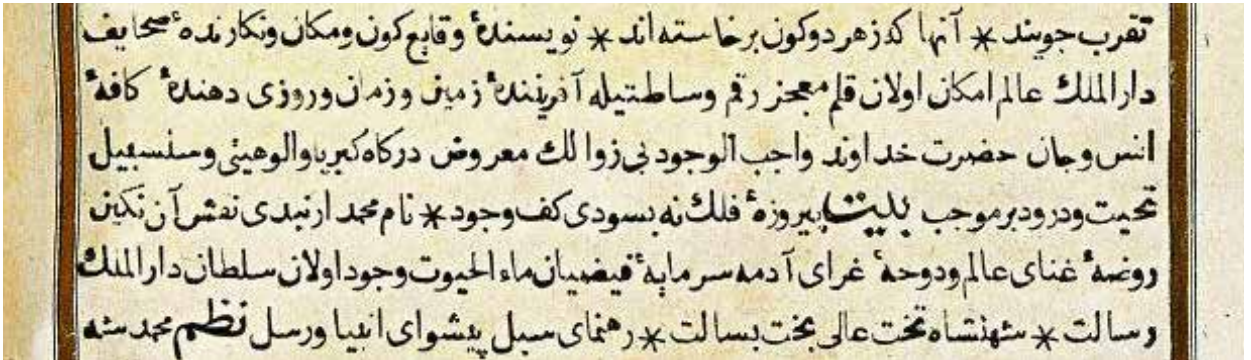 تقرب جويند * آنها كه زهر دو كون برخاسته اند * نويسندهٔ وقايع كون ومكان ونكارندهٔ صحايف
دار الملك عالم امكان اولان قلم معجز رقم وساطتيله آفرينندهٔ زمين وزمان وروزى دهندهٔ كافهٔ
انس وجان حضرت خداوند واجب الوجود بى زوالك معروض دركاه كبريا والوهيتى وسلسبيل
تحيت ودرود بر موجب بيت پيروزهٔ فلك نه بسودى كف وجود * نام محمد ار نبدى نقش آن نكين
روضهٔ غناى عالم ودوحهٔ غراى آدمه سرمايهٔ فيضيان ماء الحيوت وجود اولان سلطان دار الملك
رسالت * شهنشاه تخت عالى بخت بسالت * رهنماى سبل پيشواى انبيا ورسل نظم محمد شه